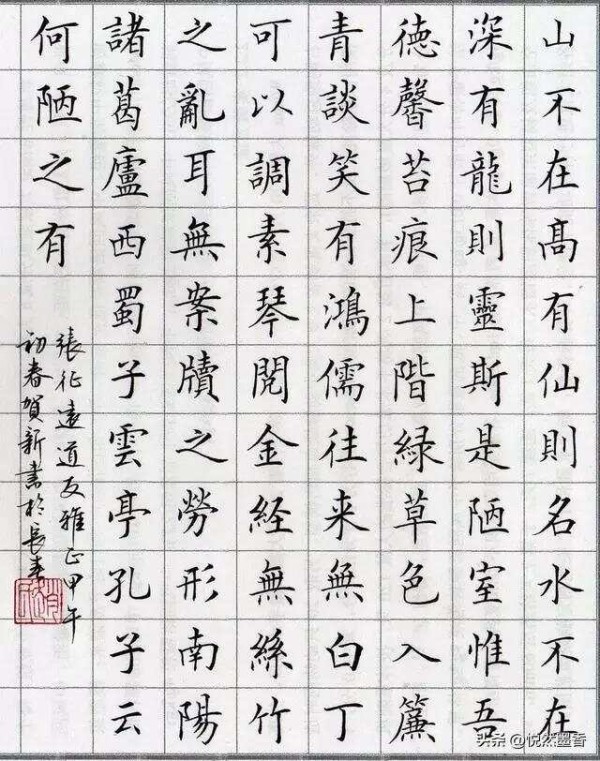 山不在髙有仙則名水不在
深有龍則靈斯是陋室惟吾
徳馨苔痕上階緑草色入簾
青談笑有鴻儒往来無白丁
可以調素琴閲金経無絲竹
之亂耳無案牘之勞形南陽
諸葛廬西蜀子雲亭孔子云
何陋之有
張征遠道友雅正甲午
初春賀新書於長春
头条 @悦然墨香